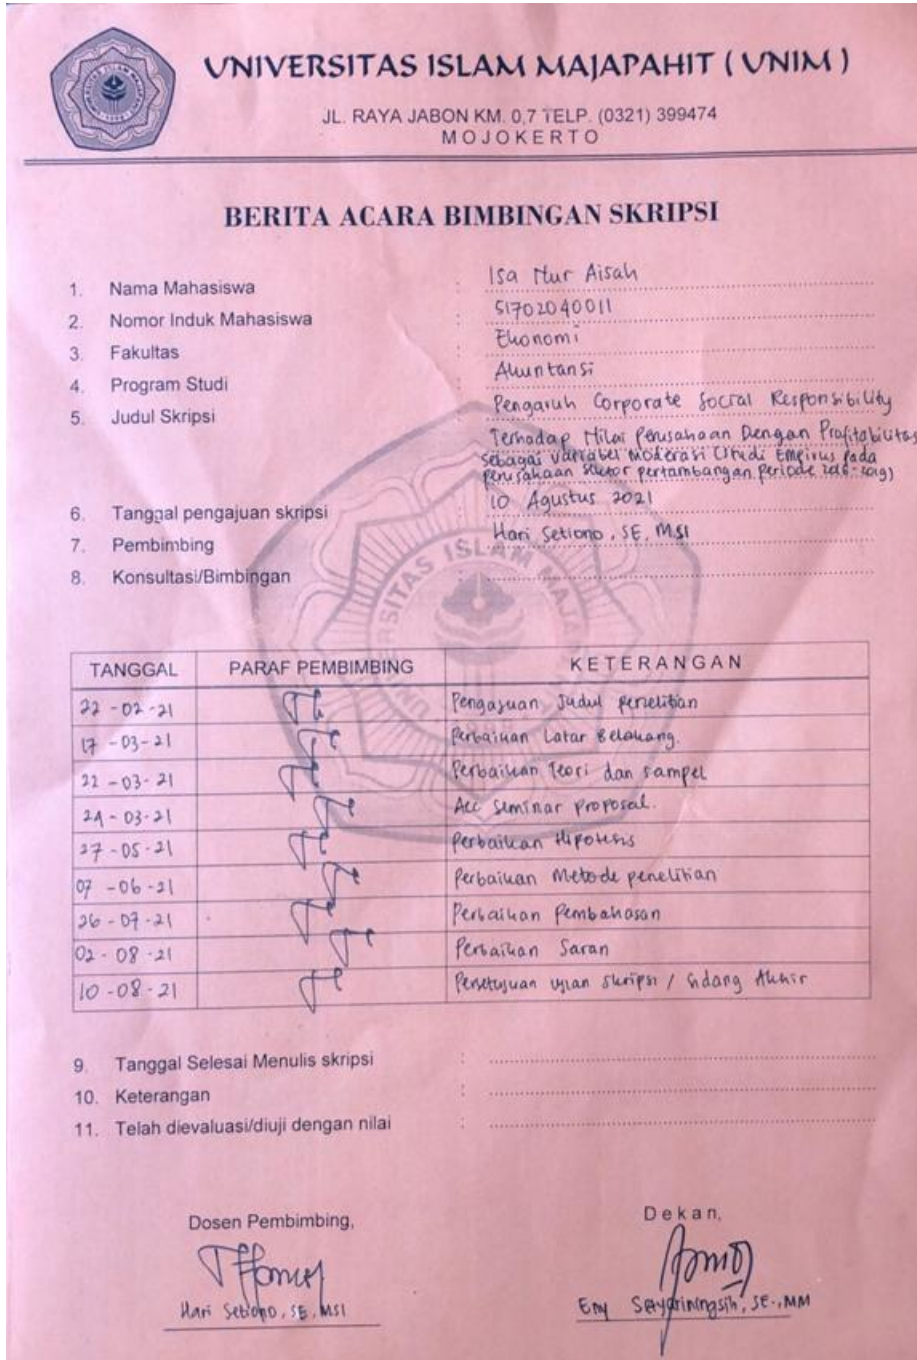 UNIVERSITAS ISLAM MAJAPAHIT ( UNIM )
JL. RAYA JABON KM. 0,7 TELP. (0321) 399474
MOJOKERTO
BERITA ACARA BIMBINGAN SKRIPSI
1. Nama Mahasiswa : Isa Nur Aisah
2. Nomor Induk Mahasiswa : 51702040011
3. Fakultas : Ekonomi
4. Program Studi : Akuntansi
5. Judul Skripsi : Pengaruh Corporate Social Responsibility
Terhadap Nilai Perusahaan Dengan Profitabilitas
sebagai Variabel Moderasi (Studi Empiris pada
perusahaan sektor pertambangan periode 2016-2019)
6. Tanggal pengajuan skripsi : 10 Agustus 2021
7. Pembimbing : Hari Setiono, SE, MSI
8. Konsultasi/Bimbingan :
TANGGAL PARAF PEMBIMBING KETERANGAN
22-02-21 Pengajuan Judul penelitian
17-03-21 Perbaikan Latar Belakang.
22-03-21 Perbaikan Teori dan sampel
24-03-21 Acc seminar proposal.
27-05-21 Perbaikan Hipotesis
07-06-21 Perbaikan Metode penelitian
26-07-21 Perbaikan Pembahasan
02-08-21 Perbaikan Saran
10-08-21 Persetujuan ujian skripsi / sidang Akhir
9. Tanggal Selesai Menulis skripsi :
10. Keterangan :
11. Telah dievaluasi/diuji dengan nilai :
Dosen Pembimbing, Dekan,
Hari Setiono, SE, MSI Eny Setyariningsih, SE., MM